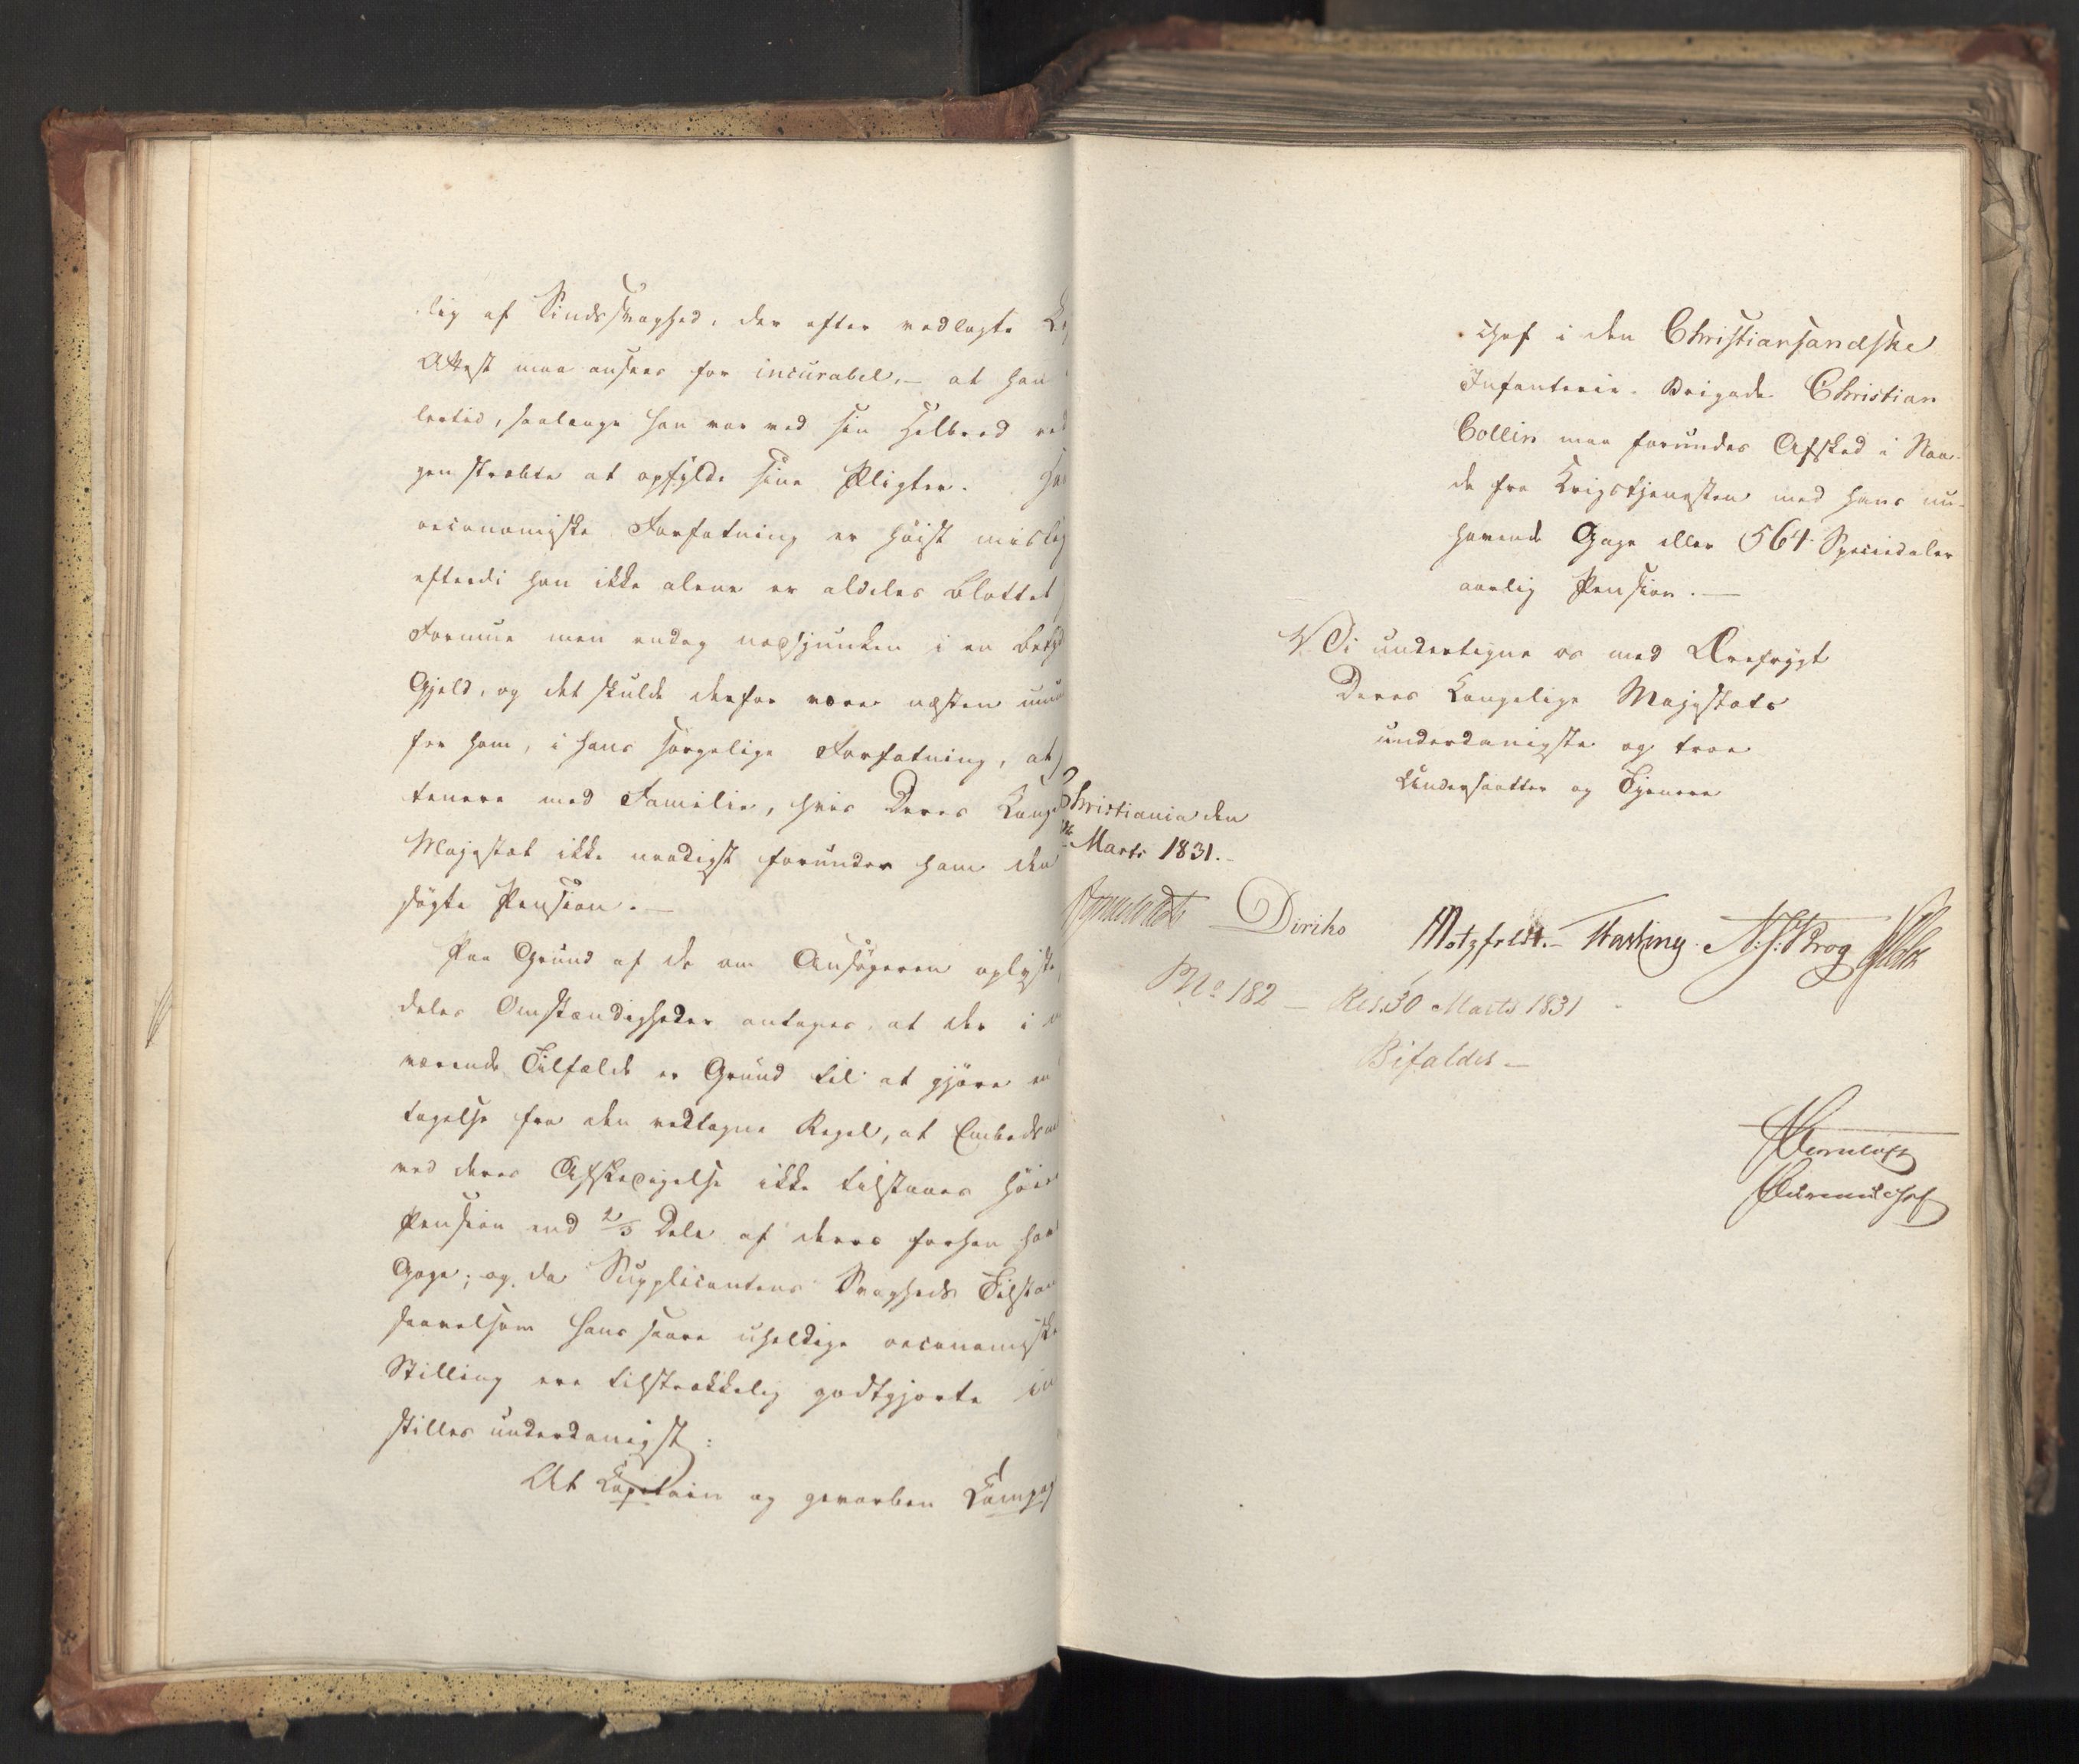 lig af Sindssvaghed, der efter vedlagte L
Attest maa ansees for incurabel, – at han
levtid, saalange han var ved sin Helbred red
gen stræbte at opfylde sine Pligter. Han
oeconomiske Forfatning er høist mislig
efterdi han ikke alene er aldeles blottet
Formue men endog nedsjunken i en betyd
Gjeld, og det skulde derfor være næsten umu
for ham, i hans sørgelige Forfatning, at
tenere med Familie, hvis Deres Konge
Majestæt ikke naadigst forunder ham den
søgte Pension. —
Paa Grund af de om Ansøgeren oplyste
deles Omstændigheder antages, at der i n
værende Tilfælde er Grund til at gjøre en
tagelse fra den vedtagne Regel, at Embedsm
ved deres Afskedigelse ikke tilstaaes høie
Pension end 2/3 Dele af deres forhen hav
Gage; og da Supplicantens Svagheds Tilstan
saavelsom hans saare uheldige oeconomiske
Stilling ere tilstrækkelig godtgjorte in
stilles underdanigst:
At Capitain og geworben Compag
chef i den Christiansandske
Infanterie-Brigade Christian
Collin maa forundes Afsked i Naa-
de fra Krigstjenesten med hans nu-
havende Gage eller 564 Speciedaler
aarlig Pension. —
Vi undertegne os med Ærefrygt
Deres Kongelige Majestæts
underdanigste og troe
Undersaatter og Tjenere
Christiania den
Marts 1831. –
Diriks Motzfeldt. – N: J: Krog Holst
No 182 – Res. 30 Marts 1831
Bifaldes –